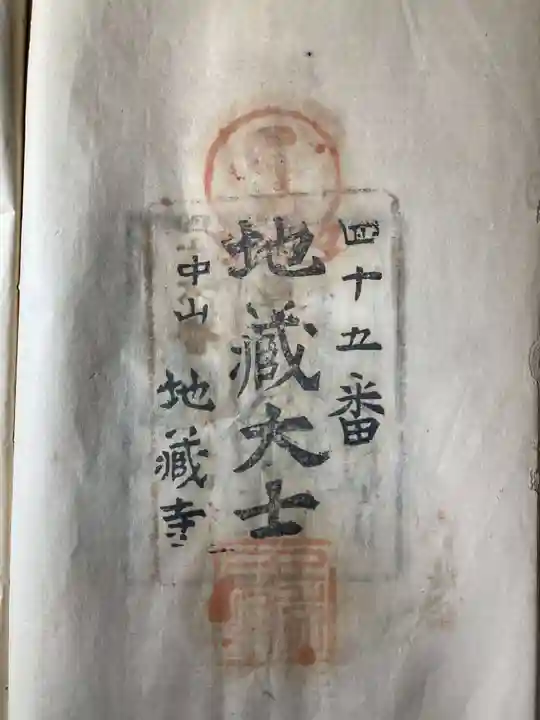 四十五番
地藏大士
中山
地藏寺